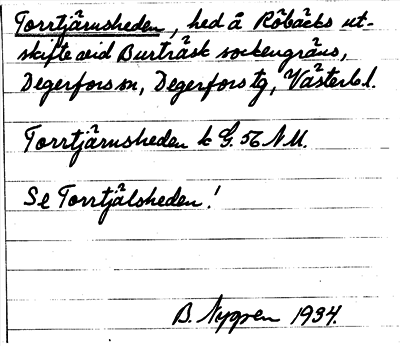 Torrtjärnsheden, hed å Röbäcks ut-
skifte vid Burträsk sockengräns,
Degerfors sn, Degerfors tg, Västerb.l.
Torrtjärnsheden k G. 56 N.M.
Se Torrtjälsheden!
B. Nygren 1934.